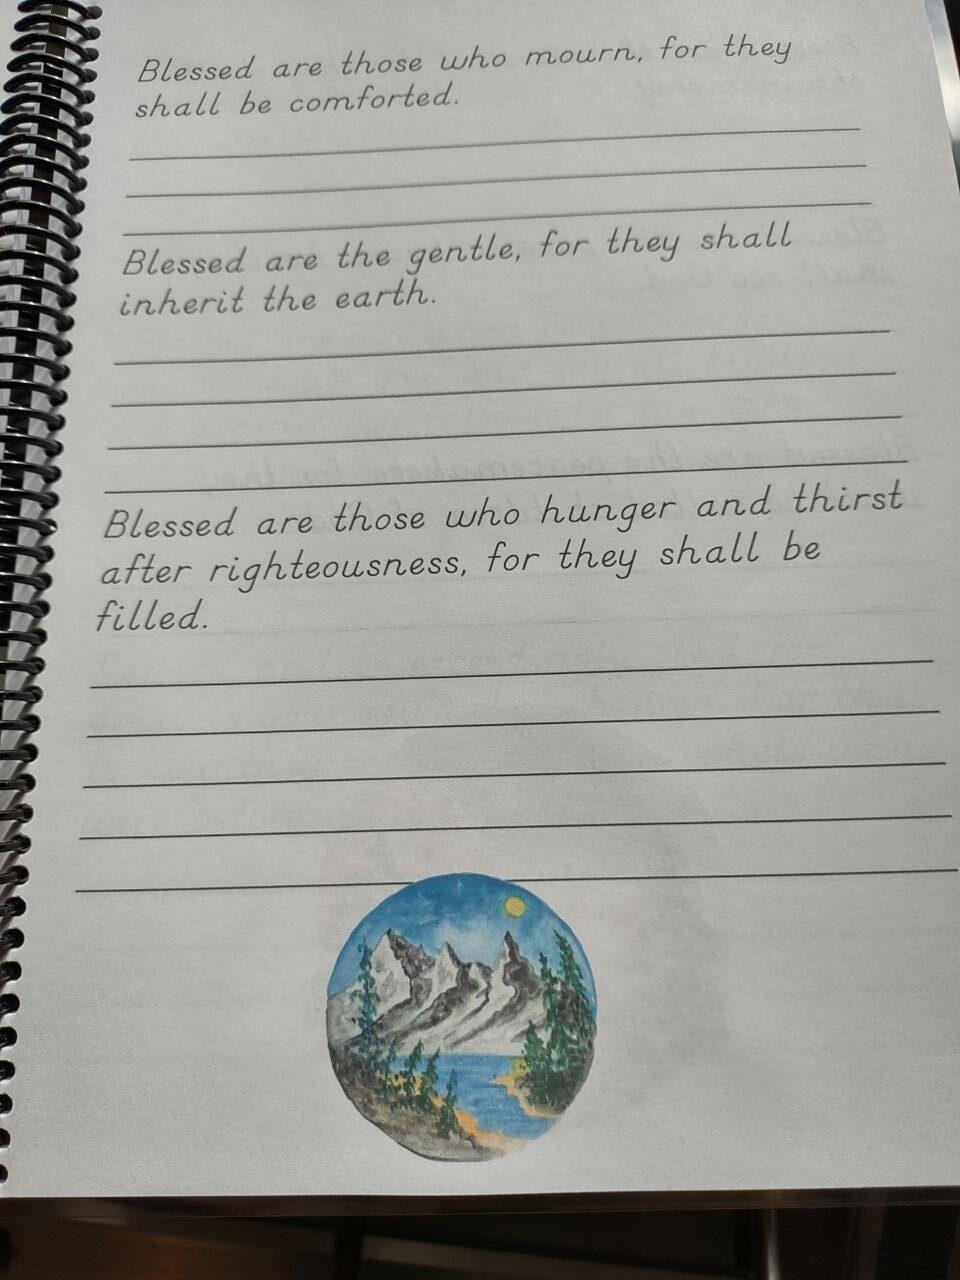 Blessed are those who mourn, for they
shall be comforted.
Blessed are the gentle, for they shall
inherit the earth.
Blessed are those who hunger and thirst
after righteousness, for they shall be
filled.